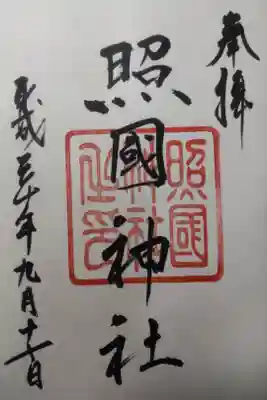 奉拝
照國神社
照國神社之印
平成三十年九月十一日